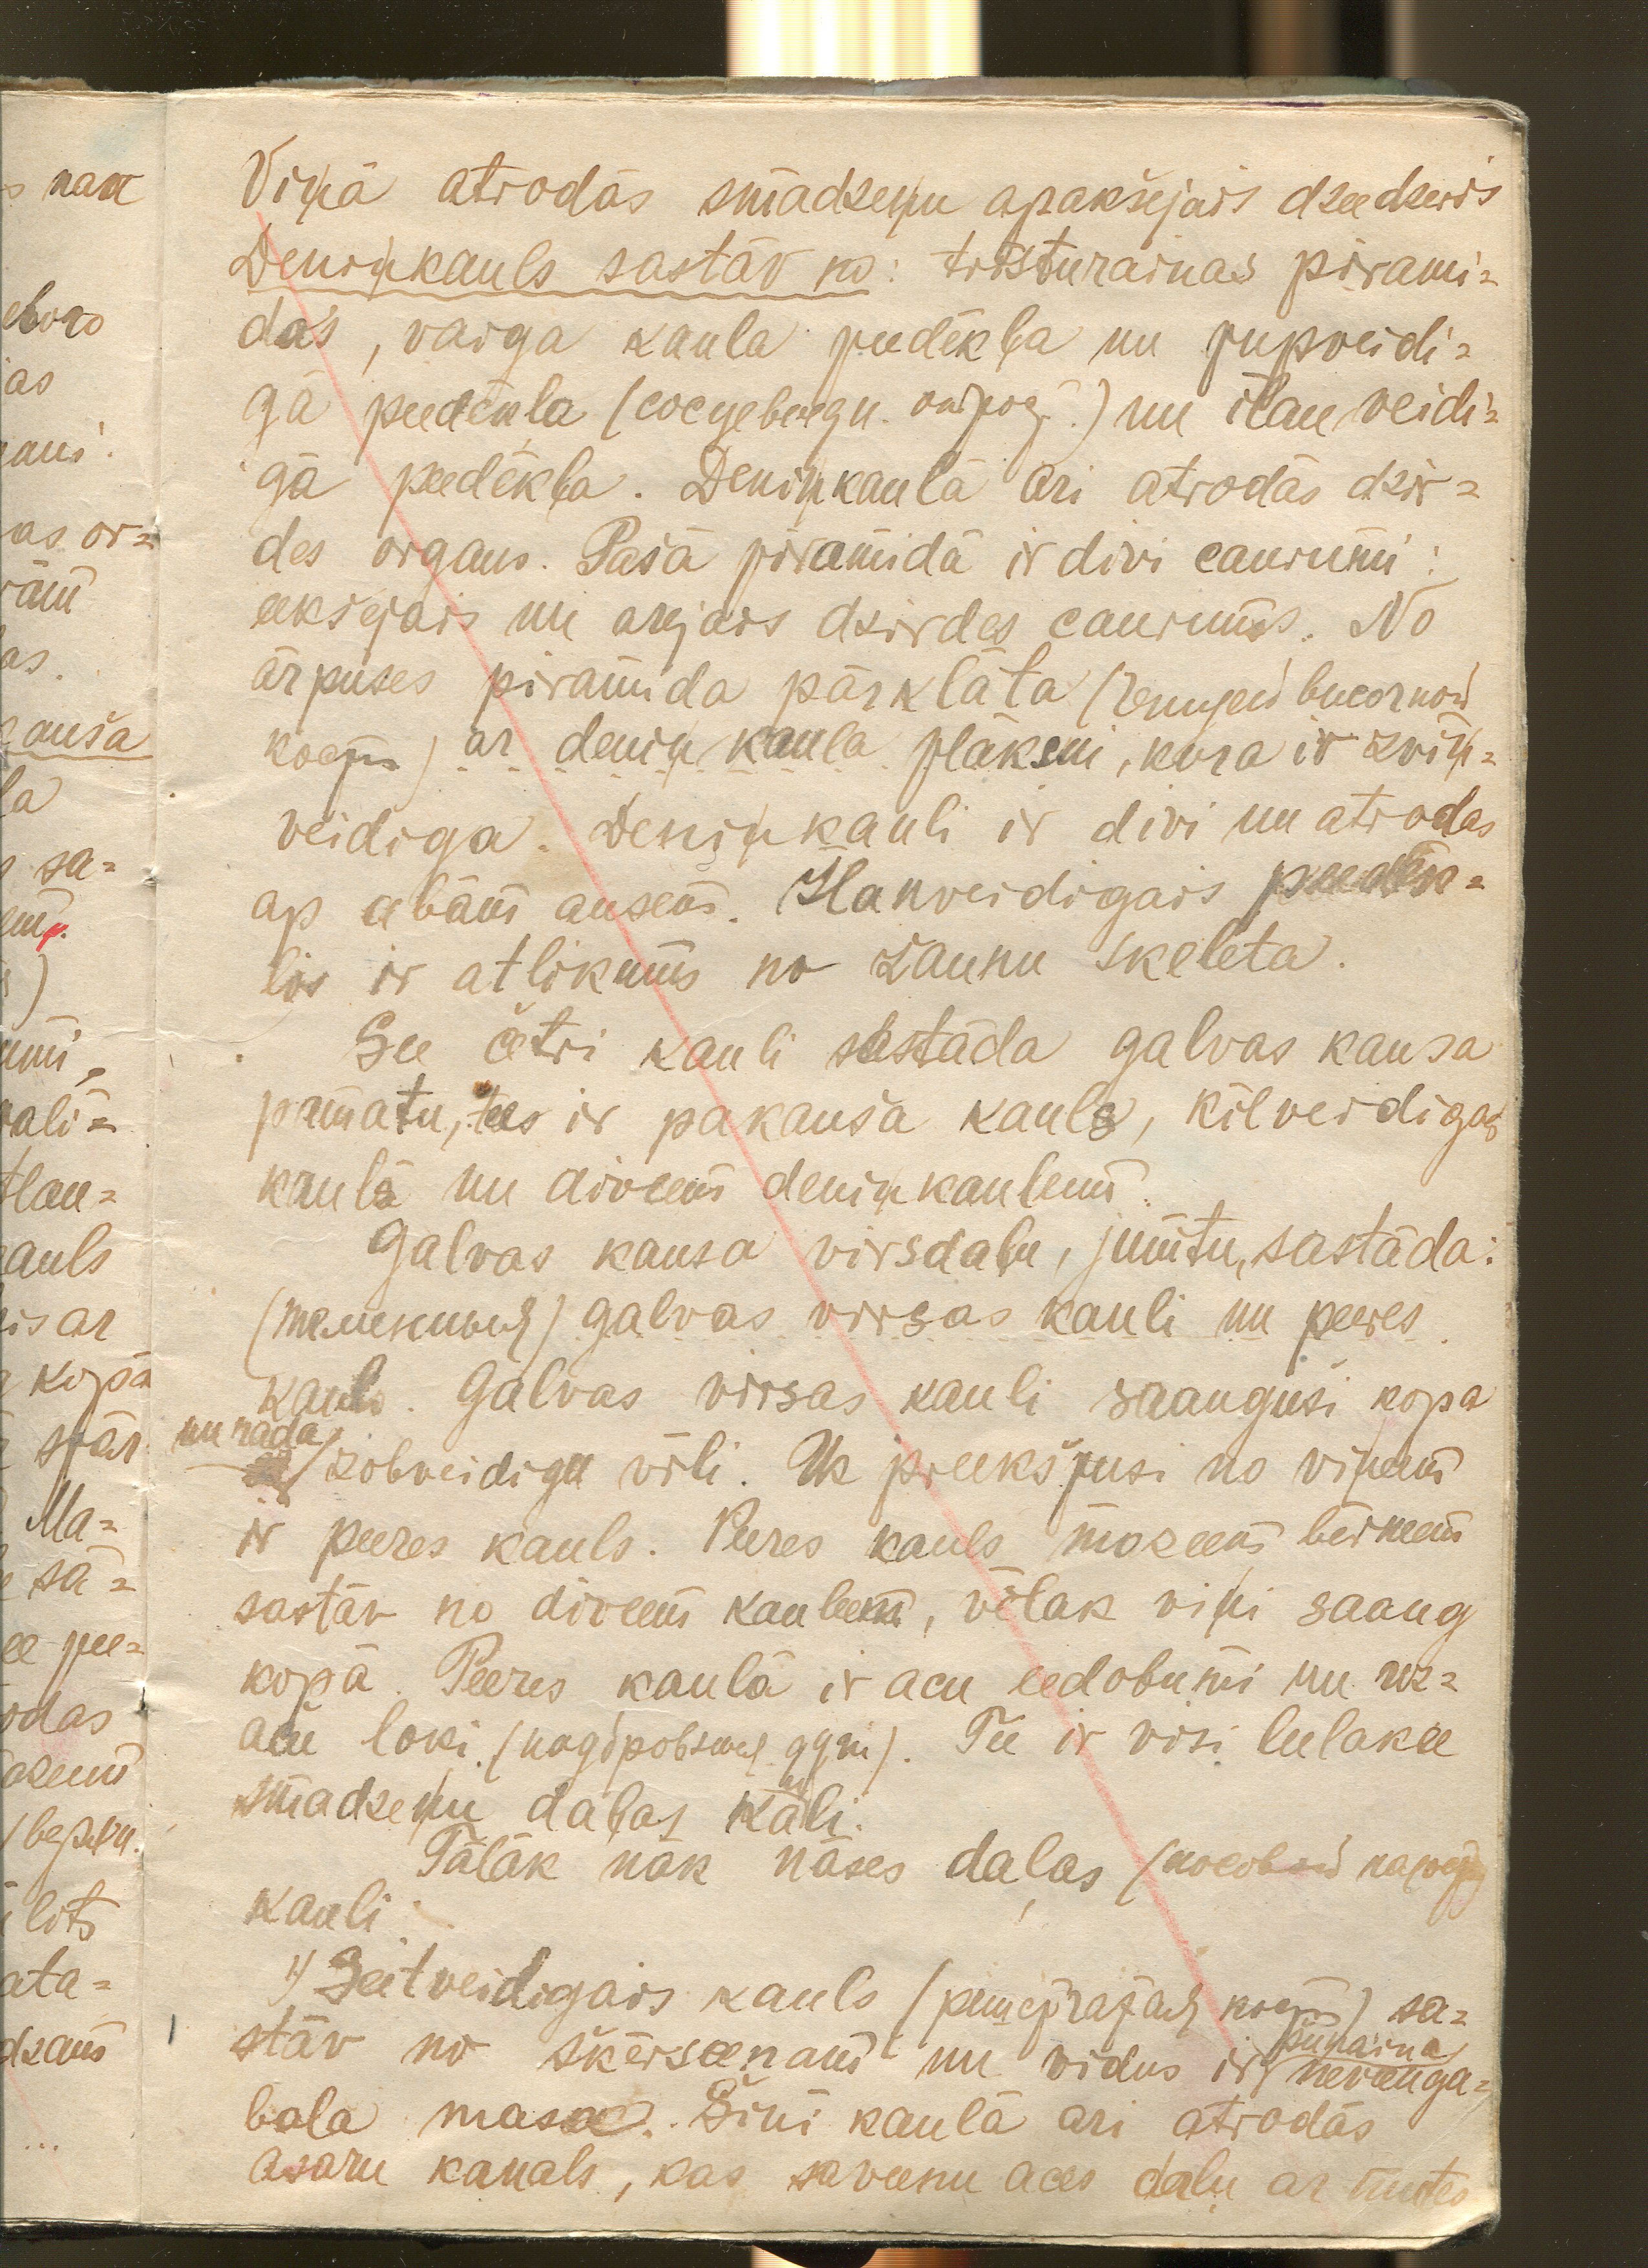 Viņā atrodās smadzeņu apakšejais dzeedzeris
Deniņkauls sastāv no: trisstūrainas pirami=
das, vaiga kaula peedēkļa un pupveidi=
gā peedēkļa (сосцевидн. отрог.) un īlenveidi=
gā peedēkļa. Deniņkaulā ari atrodās dzir=
des organs. Pašā piramidā ir divi caurumi:
eekšejais un arejais dzirdes caurums. No
ārpuses piramida pārklāta (чешуей височной
кости) ar deniņ kaula plāksni, kura ir zvīņ=
veidiga. Deniņkauli ir divi un atrodas
ap abām ausem. Ilenveidigais peedēk=
lis ir atlikums no žaunu skeleta.
See četri kauli sastāda galvas kausa
pamatu, tas ir pakauša kauls, ķīlveidigas
kaulā un diveem deniņkauleem.
Galvas kausa virsdaļu, jumtu, sastāda:
(теменных) galvas virsas kauli un peeres
kauls. Galvas virsas kauli saauguši kopa
un rada
zobveidigu vīli. Uz preekšpusi no viņeem
ir peeres kauls. Peeres kauls mazeem bērneem
sastāv no diveem kauleem, vēlak viņi saaug
kopā. Peeres kaulā ir acu eedobumi un uz=
acu loki (надбровных дуги). Tee ir visi leelakee
smadzeņu daļas kauli.
Tālāk nāk nāses daļas (носовой
kauli:
1) Seetveidigais kauls (решетчатая кость) sa=
stāv no šķērseenam un vidus ir
pūraina
neveenga=
bala masa. Šini kaulā ari atrodās
asaru kanals, kas saveenu aces daļu ar mutes